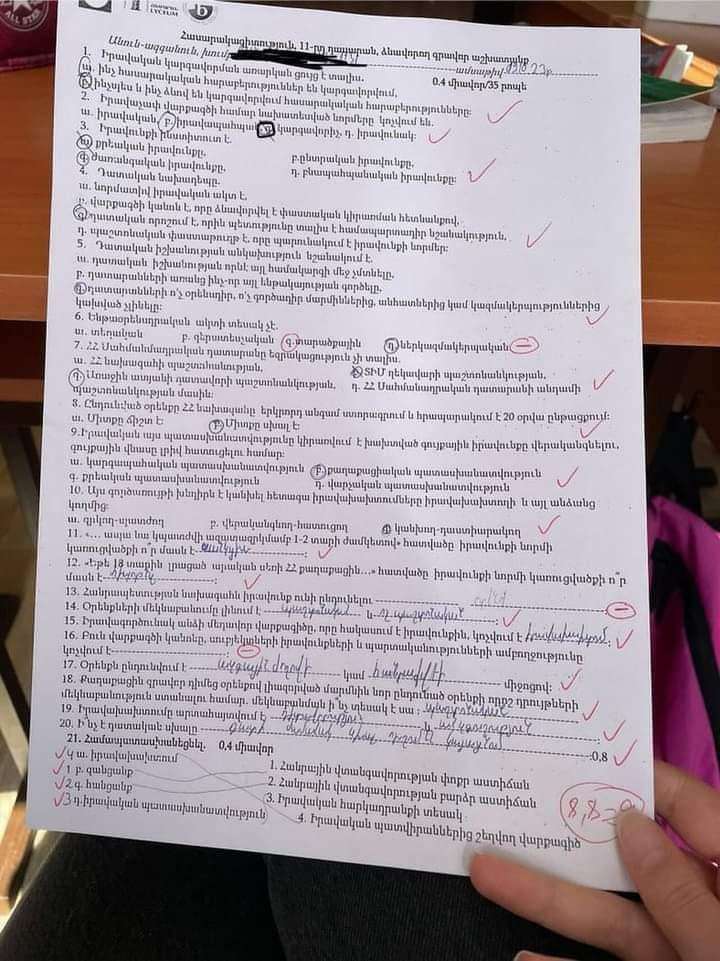 ALL STAR
LYCEUM
Հասարակագիտություն, 11-րդ դասարան, ձևավորող գրավոր աշխատանք
Անուն-ազգանուն, խումբ ամսաթիվ
1. Իրավական կարգավորման առարկան ցույց է տալիս. 0.4 միավոր/35 րոպե
ա. ինչ հասարակական հարաբերություններ են կարգավորվում,
բ. ինչպես և ինչ ձևով են կարգավորվում հասարակական հարաբերությունները:
2. Իրավաչափ վարքագծի համար նախատեսված նորմերը կոչվում են.
ա. իրավական բ. իրավապահպան գ. կարգավորիչ, դ. իրավունակ:
3. Իրավունքի ինստիտուտ է.
ա. քրեական իրավունքը, բ. ընտրական իրավունքը,
գ. ժառանգական իրավունքը, դ. բնապահպանական իրավունքը:
4. Դատական նախադեպը.
ա. նորմատիվ իրավական ակտ է,
բ. վարքագծի կանոն է, որը ձևավորվել է փաստական կիրառման հետևանքով,
գ. դատական որոշում է, որին պետությունը տալիս է համապարտադիր նշանակություն,
դ. պաշտոնական փաստաթուղթ է, որը պարունակում է իրավունքի նորմեր:
5. Դատական իշխանության անկախություն նշանակում է.
ա. դատական իշխանության որևէ այլ համակարգի մեջ չմտնելը,
բ. դատարանների առանց ինչ-որ այլ ենթակայության գործելը,
գ. դատարանների ո՛չ օրենսդիր, ո՛չ գործադիր մարմիններից, անհատներից կամ կազմակերպություններից
կախված չլինելը:
6. Ենթաօրենսդրական ակտի տեսակ չէ.
ա. տեղական բ. գերատեսչական գ. տարածքային դ. ներկազմակերպական
7. ՀՀ Սահմանադրական դատարանը եզրակացություն չի տալիս.
ա. ՀՀ նախագահի պաշտոնանկության, բ. ՏԻՄ ղեկավարի պաշտոնանկության,
գ. Առաջին ատյանի դատավորի պաշտոնանկության, դ. ՀՀ Սահմանադրական դատարանի անդամի
պաշտոնանկության մասին:
8. Ընդունված օրենքը ՀՀ նախագահը երկրորդ անգամ ստորագրում և հրապարակում է 20 օրվա ընթացքում:
ա. Միտքը ճիշտ է բ. Միտքը սխալ է
9. Իրավական այս պատասխանատվությունը կիրառվում է խախտված գույքային իրավունքը վերականգնելու,
գույքային վնասը լրիվ հատուցելու համար:
ա. կարգապահական պատասխանատվություն բ. քաղաքացիական պատասխանատվություն
գ. քրեական պատասխանատվություն դ. վարչական պատասխանատվություն
10. Այս գործառույթի խնդիրն է կանխել հետագա իրավախախտումները իրավախախտողի և այլ անձանց
կողմից:
ա. զսպող-պատժող բ. վերականգնող-հատուցող գ. կանխող-դաստիարակող
11. «… ապա նա կպատժվի ազատազրկմամբ 1-2 տարի ժամկետով» հատվածը իրավունքի նորմի
կառուցվածքի ո՞ր մասն է սանկցիա:
12. «Եթե 18 տարին լրացած արական սեռի ՀՀ քաղաքացին…» հատվածը իրավունքի նորմի կառուցվածքի ո՞ր
մասն է հիպոթեզ:
13. Հանրապետության նախագահն իրավունք ունի ընդունելու
14. Օրենքների մեկնաբանումը լինում է պաշտոնական և ոչ պաշտոնական:
15. Իրավագործունակ անձի մեղավոր վարքագիծը, որը հակասում է իրավունքին, կոչվում է իրավախախտում:
16. Բուն վարքագծի կանոնը, սուբյեկտների իրավունքների և պարտականությունների ամբողջությունը
կոչվում է
17. Օրենքն ընդունվում է ազգային ժողովի կամ հանրաքվեի միջոցով:
18. Քաղաքացին գրավոր դիմեց օրենքով լիազորված մարմնին նոր ընդունված օրենքի որոշ դրույթների
մեկնաբանություն ստանալու համար. մեկնաբանման ի՞նչ տեսակ է սա : պաշտոնական
19. Իրավասուբյեկտությունը արտահայտվում է
20. Ի՞նչ է դատական սխալը 0,8
21. Համապատասխանեցնել. 0,4 միավոր
4 ա. իրավախախտում 1. Հանրային վտանգավորության փոքր աստիճան
1 բ. զանցանք 2. Հանրային վտանգավորության բարձր աստիճան
2 գ. հանցանք 3. Իրավական հարկադրանքի տեսակ
3 դ. իրավական պատասխանատվություն 4. Իրավական պատվիրաններից շեղվող վարքագիծ
8,8=9